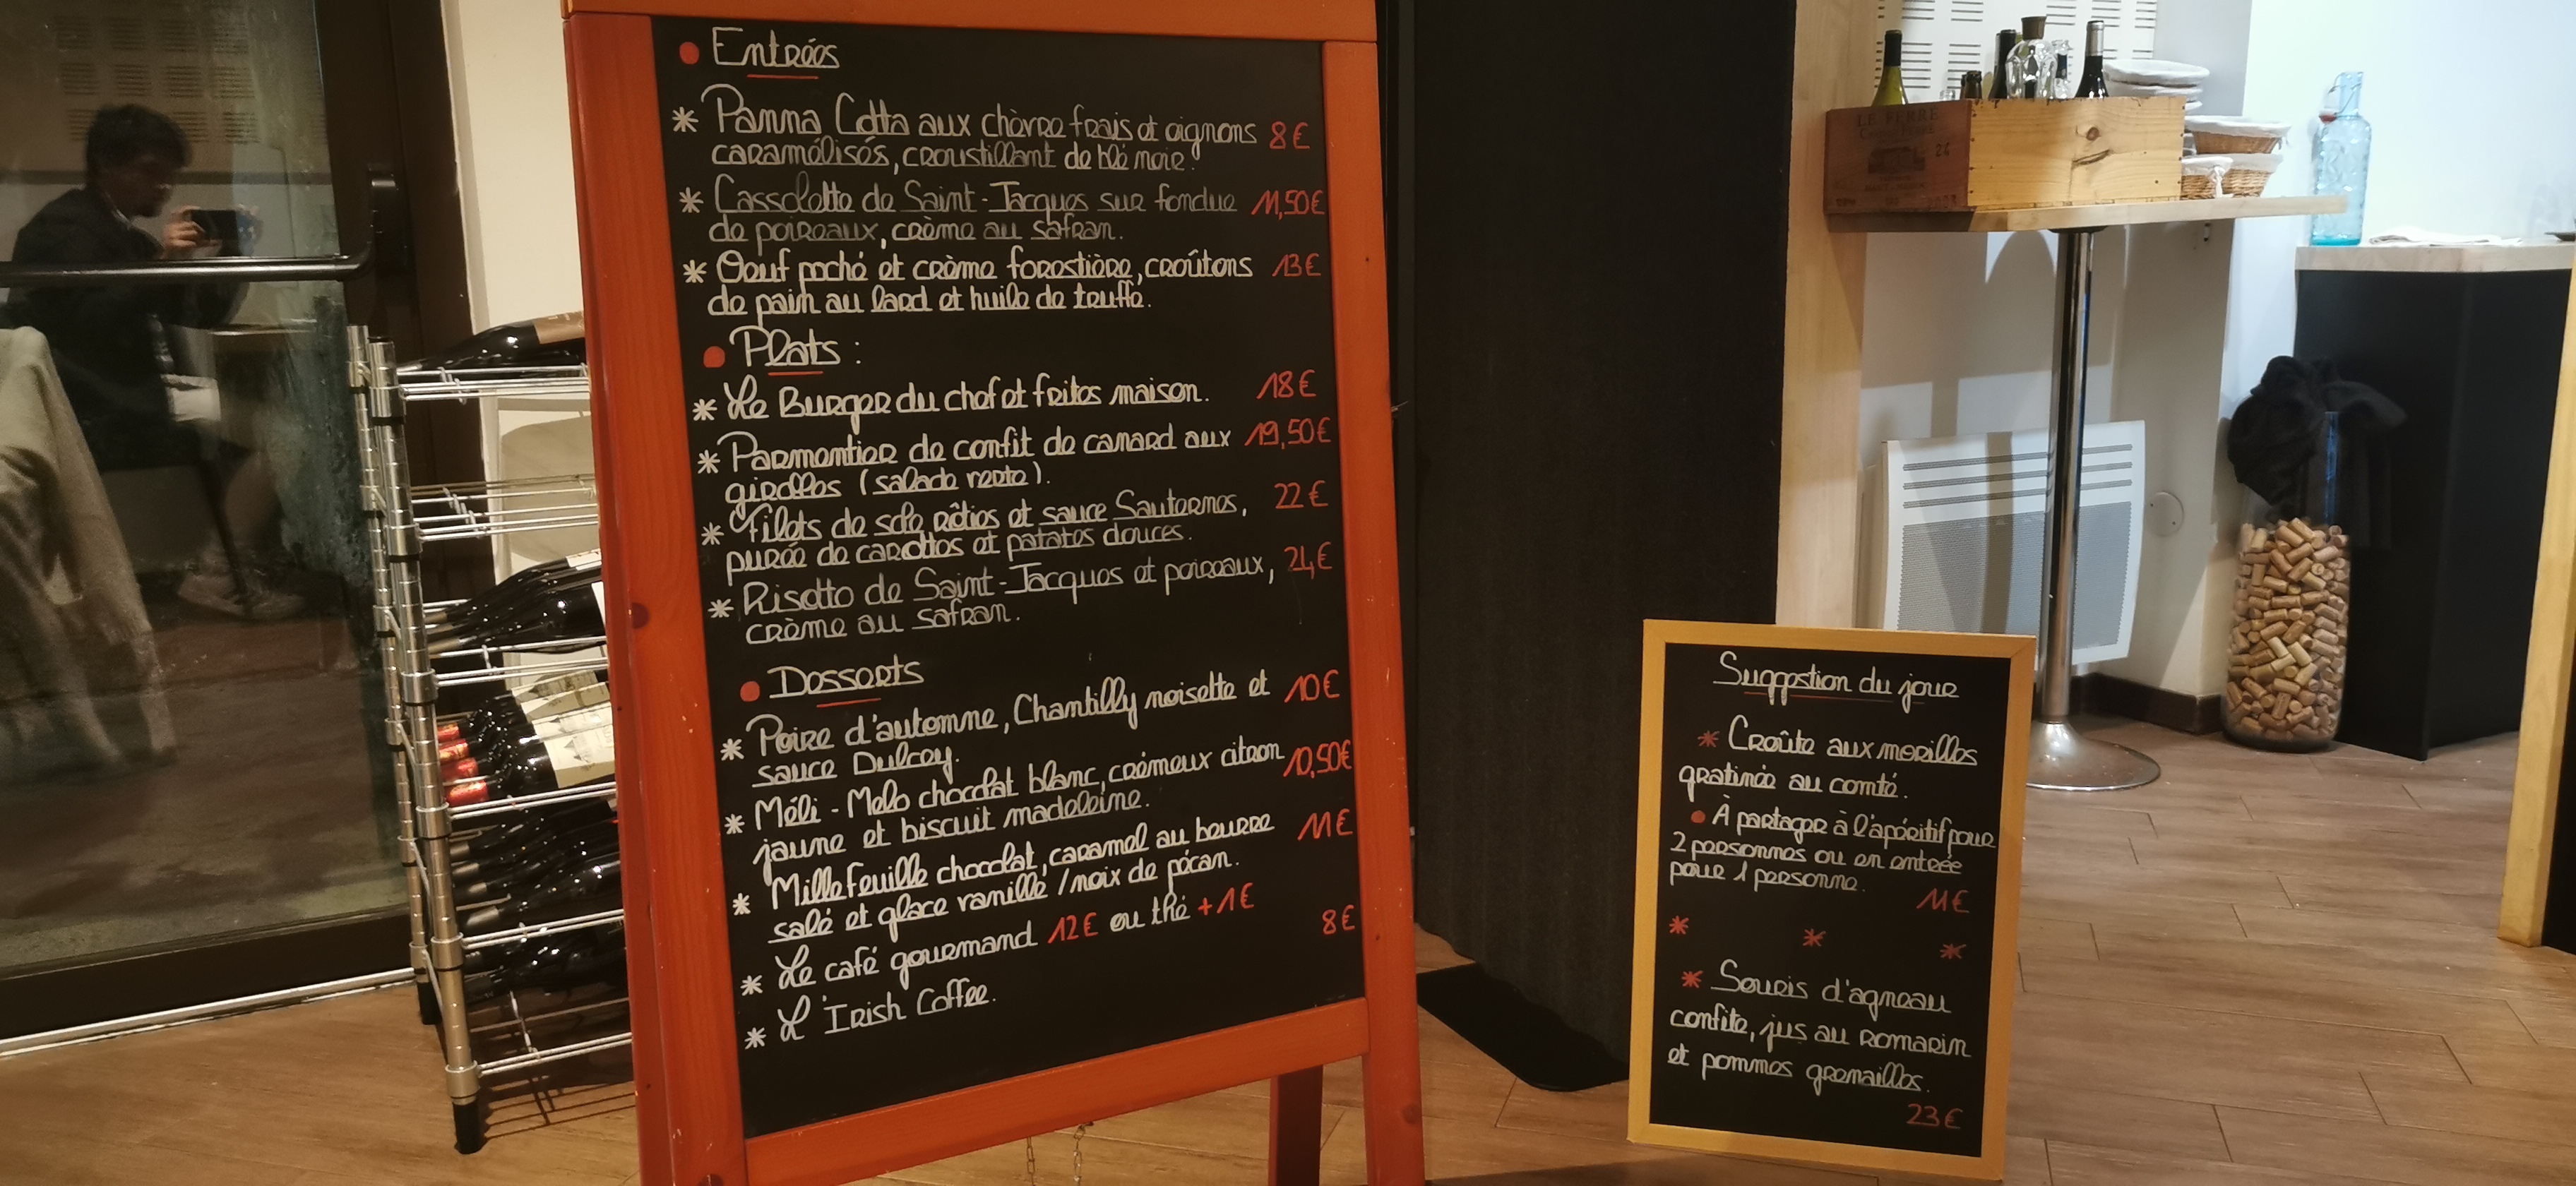 Entrées
* Panna Cotta aux chèvre frais et oignons 8€
caramélisés, croustillant de blé noir.
* Cassolette de Saint-Jacques sur fondue 11,50€
de poireaux, crème au safran.
* Oeuf poché et crème forestière, croûtons 13€
de pain au lard et huile de truffe.
Plats :
* Le Burger du chef et frites maison. 18€
* Parmentier de confit de canard aux 19,50€
girolles (salade verte).
* Filets de sole rôties et sauce Sauternes, 22€
purée de carottes et patates douces.
* Risotto de Saint-Jacques et poireaux, 24€
crème au safran.
Desserts
* Poire d'automne, Chantilly noisette et 10€
sauce Dulcey.
* Méli-Melo chocolat blanc, crémeux citron 10,50€
jaune et biscuit madeleine.
* Millefeuille chocolat, caramel au beurre 11€
salé et glace vanille / noix de pécan.
* Le café gourmand 12€ ou thé +1€
* L'Irish Coffee. 8€
Suggestion du jour
* Croûte aux morilles
gratinée au comté.
À partager à l'apéritif pour
2 personnes ou en entrée
pour 1 personne.
11€
* * *
* Souris d'agneau
confite, jus au romarin
et pommes grenailles.
23€
LE FERRE
24